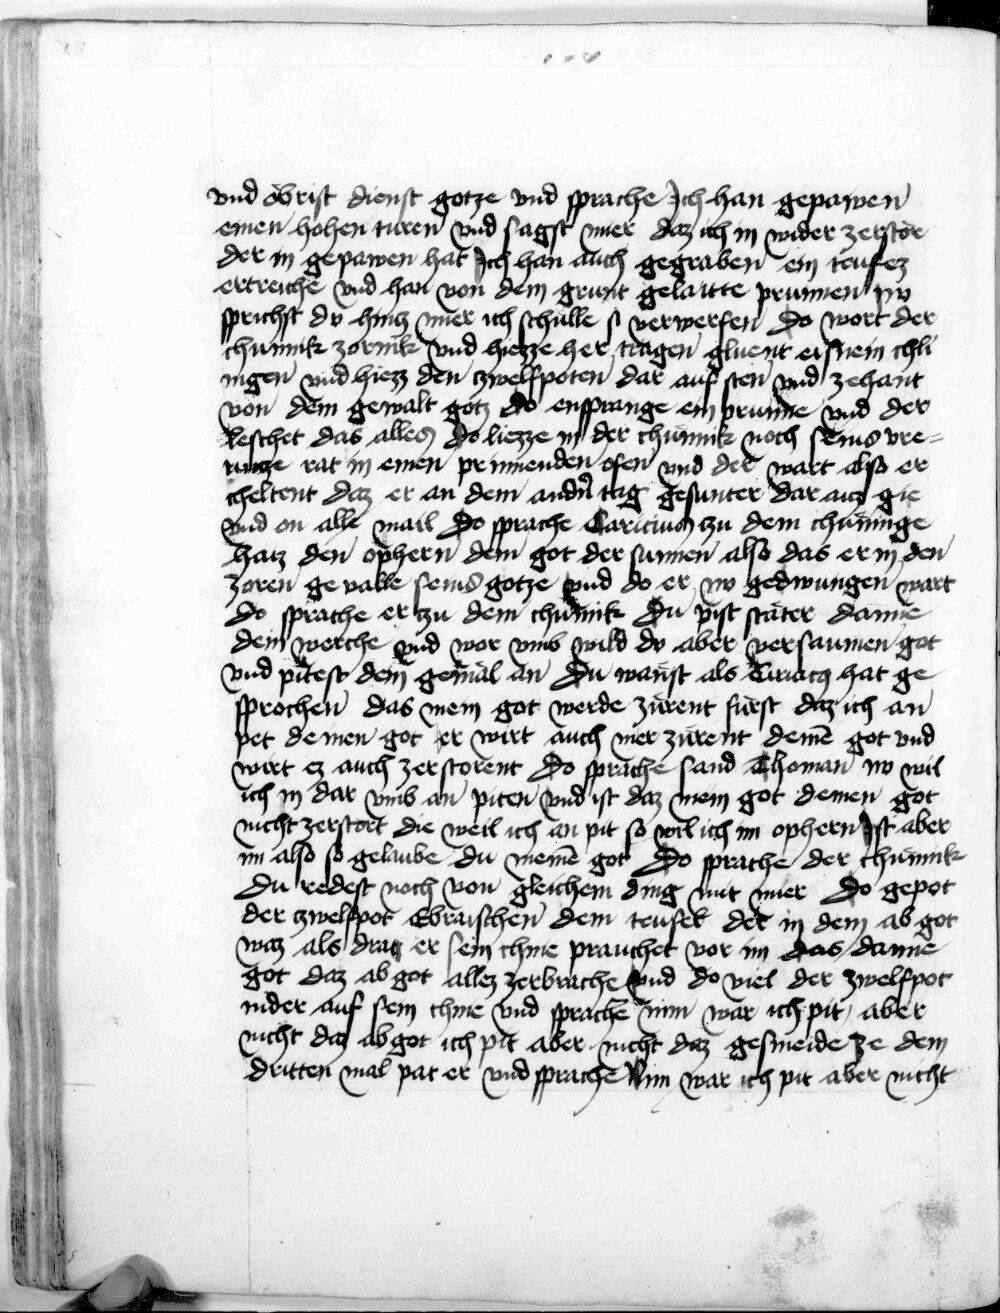 vnd öbrist dienst gotze vnd sprache Ich han gepawen
einen hohen turen vnd sagst mier daz ich in wider zerstör
der in gepawen hat Ich han auch gegraben ein teufez
ertreiche vnd han von dem grunt gelaitte prunnen nv
sprichst dv hintz mier ich schulle si verwerfen Do wort der
chunnik zornik vnd hiezze her tragen gluent eisnein chli
nigen vnd hiezz den zwelfpoten dar auf sten vnd zehant
von dem gewalt gotz do ensprange ein prunne vnd der
leschet das alles Do liezze in der chünnik noch seins vre-
tuntze rat in einen prinnenden ofen vnd der wart also er
cheltent daz er an dem andern tag gesunter dar auz gie
vnd on alle mail Do sprache Caricius zu dem chünnige
haiz den ophern dem got der sunnen also das er in den
zoren gevalle seins gotze vnd do er nv gedwungen wart
do sprache er zu dem chünnik Du pist stäter danne
dein werche vnd wor vmb wild dv aber versaumen got
vnd pitest dem gemäl an Du wänst als Ciriacus hat ge
sprochen das mein got werde zürent fürst daz ich an
pet deinen got er wirt auch mer zürent deinem got vnd
wirt ez auch zerstorent Do sprache sand Thoman nv wil
ich in dar vmb an piten vnd ist daz mein got deinen got
nicht zerstört die weil ich an pit so wil ich im ophern Ist aber
im also so gelaube du meinem got Do sprache der chünnik
Du redest noch von gleichem ding mit mier Do gepot
der zwelfpot Ebraischen dem teufel der in dem abgot
waz als drat er sein chnie prauchet vor im das danne
got daz abgot allez zerbrache vnd do viel der zwelfpot
nider auf sein chnie vnd sprache nim war ich pit aber
nicht daz abgot ich pit aber nicht daz gesmeide ze dem
dritten mal pat er vnd sprache Nim war ich pit aber nicht